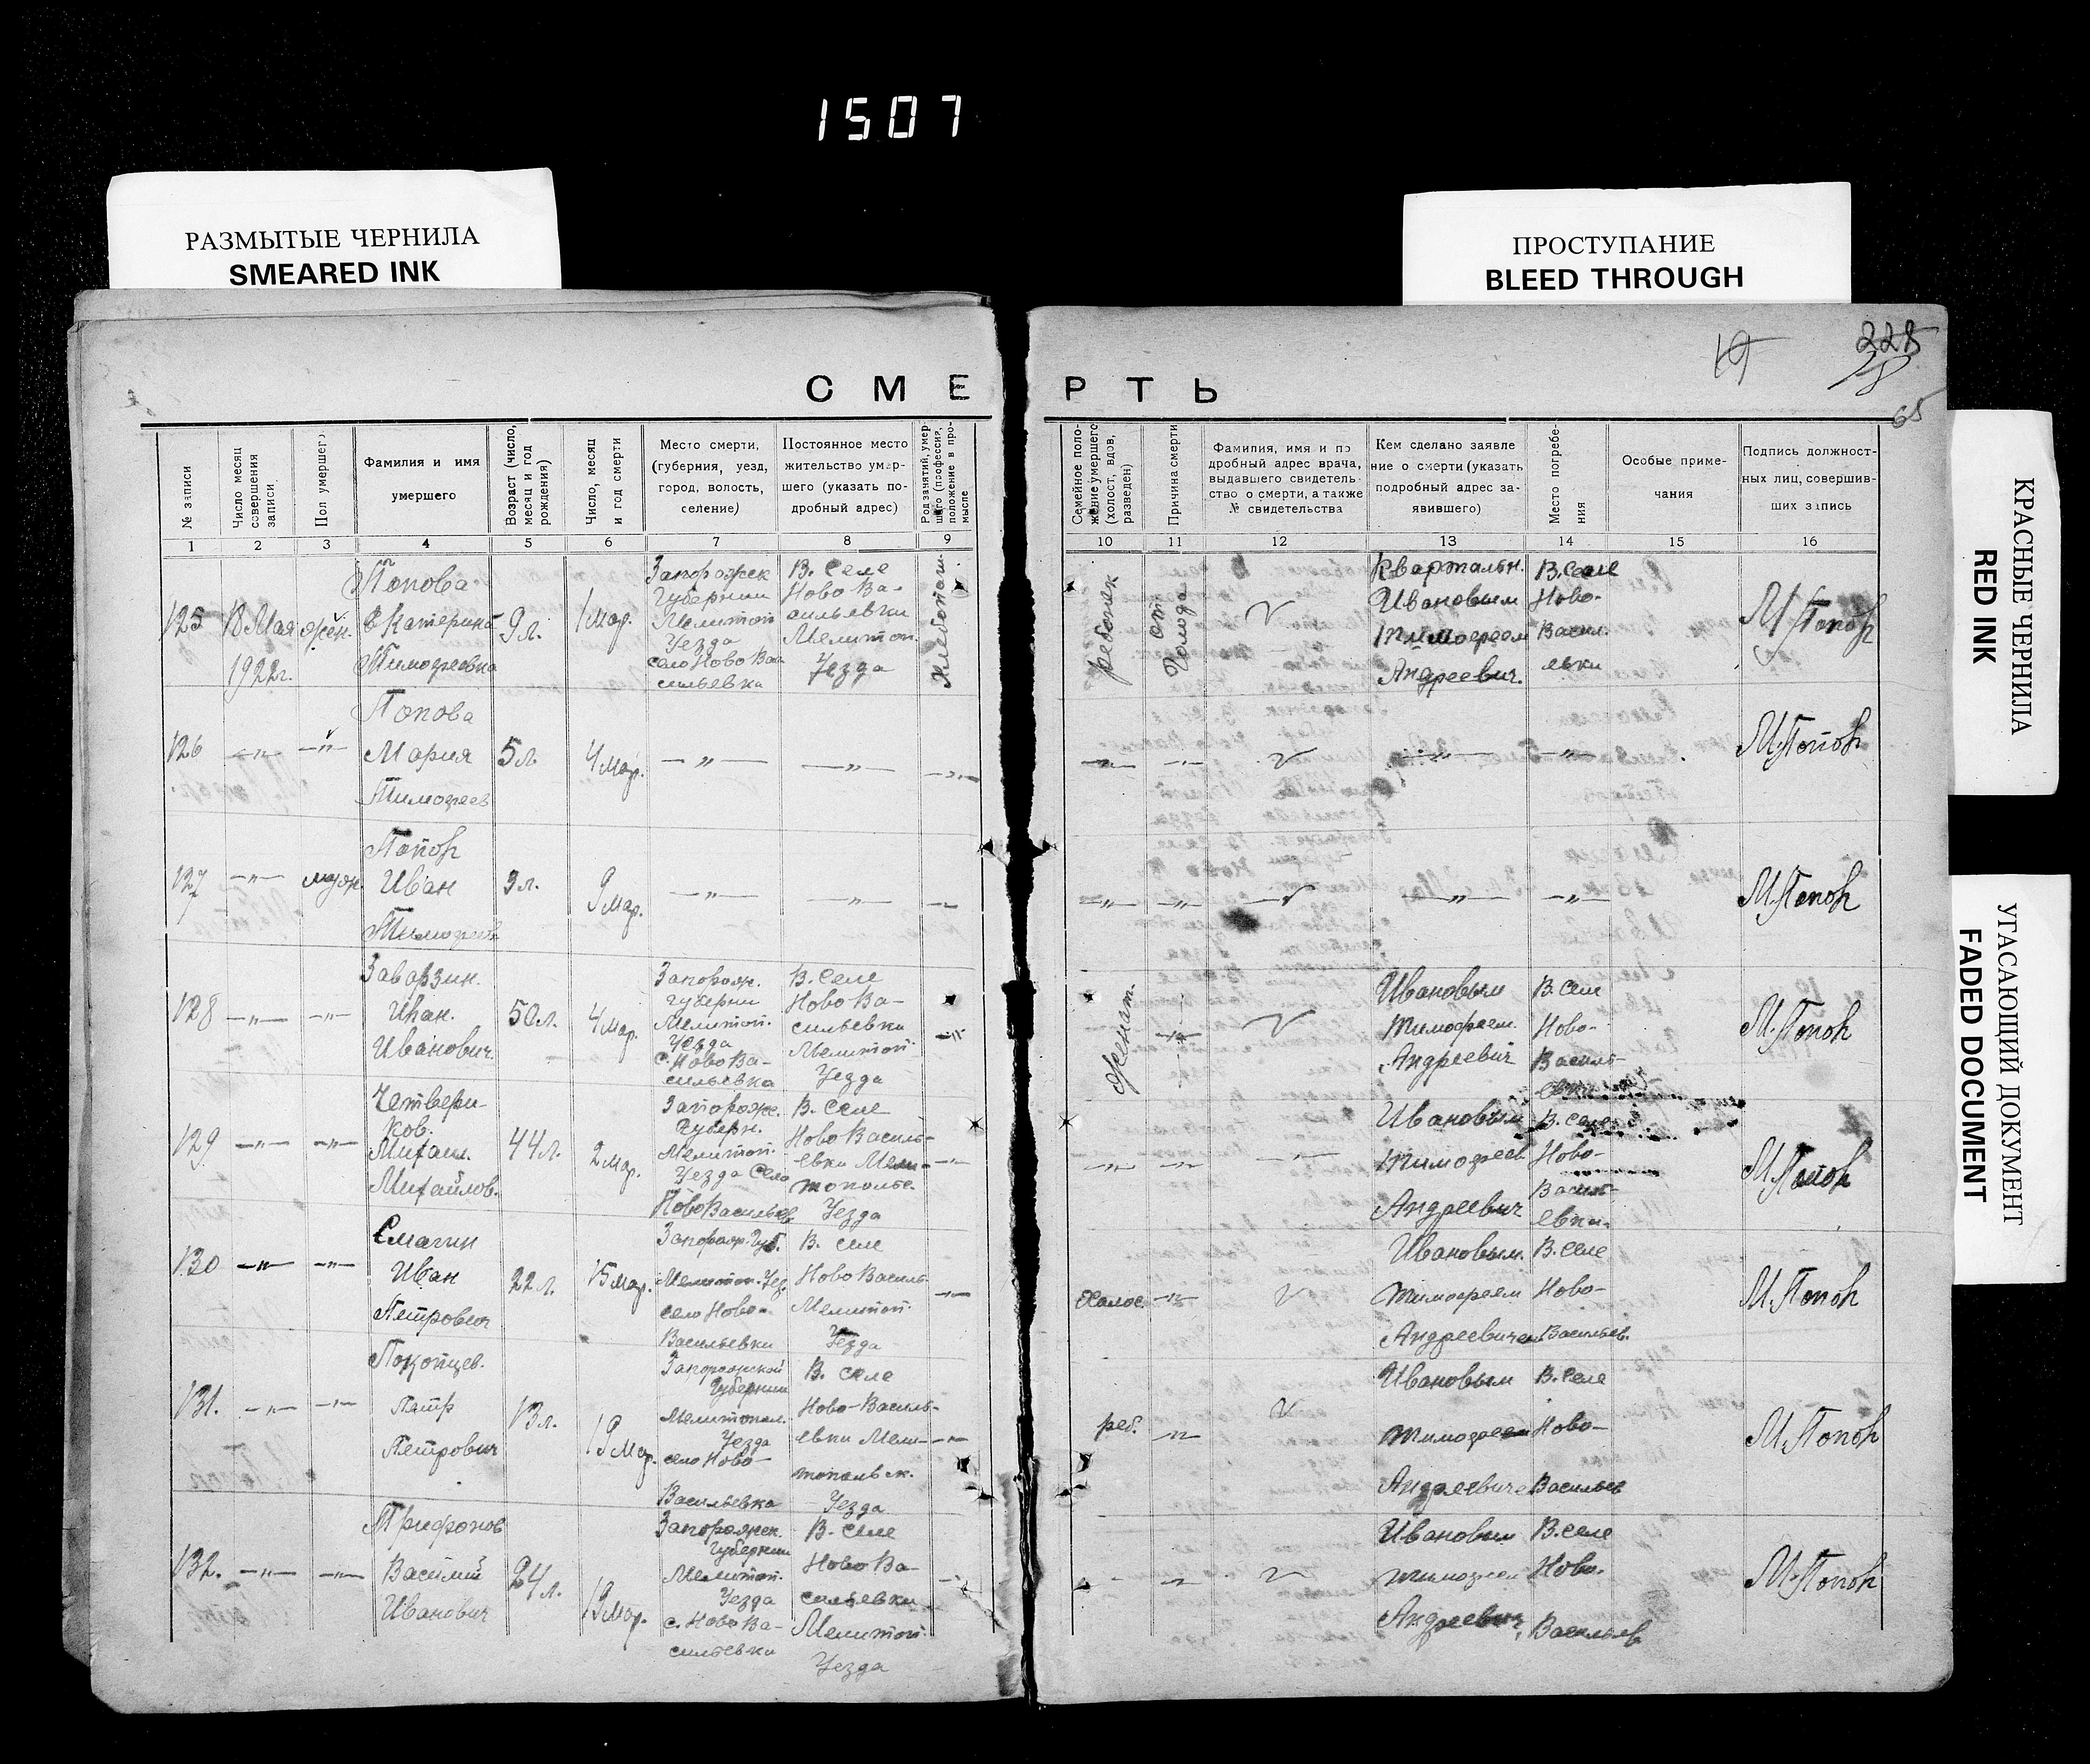 1507
РАЗМЫТЫЕ ЧЕРНИЛА
SMEARED INK
ПРОСТУПАНИЕ
BLEED THROUGH
КРАСНЫЕ ЧЕРНИЛА
RED INK
УГАСАЮЩИЙ ДОКУМЕНТ
FADED DOCUMENT
65
СМЕРТЬ
№ записи
Число месяц совершения записи
Пол умершего
Фамилия и имя
умершего
Возраст (число, месяц и год рождения)
Число, месяц и год смерти
Место смерти,
(губерния, уезд,
город, волость,
селение)
Постоянное место
жительство умер-
шего (указать по-
дробный адрес)
Род занятий, умер-
шего (профессия,
положение в про-
мысле
Семейное поло-
жение умершего
(холост, вдов,
разведен)
Причина смерти
Фамилия, имя и по
дробный адрес врача,
выдавшего свидетель-
ство о смерти, а также
№ свидетельства
Кем сделано заявле
ние о смерти (указать
подробный адрес за-
явившего)
Место погребе-
ния
Особые приме-
чания
Подпись должност-
ных лиц, совершив-
ших запись
1 2 3 4 5 6 7 8 9 10 11 12 13 14 15 16
125
18 Мая
1922г.
жен.
Попова
Екатерина
Тимофеевна
9л.
1 мар.
Запорожск
Губернии
Мелитоп
Уезда
село Ново Ва
сильевка
В. Селе
Ново Ва-
сильевки
Мелитоп.
Уезда
Хлебопаш.
ребенок
от
Голода
Квартальн.
Ивановым
Тимофеем
Андреевич.
В. Селе
Ново-
Васил.
евки
М Попов
126
—"—
—"—
Попова
Мария
Тимофеев
5л.
4 мар.
—"—
—"—
—"—
—"—
—"—
—"—
—"—
М. Попов
127
—"—
муж.
Попов
Иван
Тимофеев
3л.
9 мар.
—"—
—"—
—"—
—"—
—"—
—"—
—"—
М. Попов
128
—"—
—"—
Заварзин.
Иван.
Иванович.
50л.
4 мар.
Запорож.
губерни
Мелитоп.
Уезда
с. Ново Ва-
сильевка
В. Селе
Ново Ва-
сильевки
Мелитоп.
Уезда
—"—
женат.
—"—
Ивановым
Тимофеем.
Андреевич
В. Селе
Ново-
Василь-
евки
М. Попов
129
—"—
—"—
Четвери-
ков.
Михаил.
Михайлов.
44л.
2 мар.
Запорож.
Губерн.
Мелитоп.
Уезда Село
Ново Васильев
В. Селе
Ново Василь-
евки Мели-
тополье.
Уезда
—"—
—"—
—"—
—"—
Ивановым
Тимофеев
Андреевич
В. селе
Ново-
Василь-
евки.
М. Попов
130
—"—
—"—
Смагин
Иван
Петрович
22л.
15 мар.
Запорож. Губ.
Мелитоп. Уез.
село Ново-
Васильевки
В. селе
Ново Василь-
Мелитоп.
Уезда
—"—
Холос.
—"—
Ивановым.
Тимофеем
Андреевичем
В. Селе
Ново-
Васильев.
М. Попов
131.
—"—
—"—
Петр
Петрович
13л.
19 мар.
Запорожской
Губернии
Мелитопол.
Уезда
село Ново-
Васильевка
В. Селе
Ново-Василь-
евки Мели-
топольск.
Уезда
—"—
реб.
—"—
Ивановым
Тимофеем
Андреевиче
В. Селе
Ново-
Васильев
М. Попов
132.
—"—
—"—
Трифонов
Василий
Иванович
24л.
19 мар.
Запорожск.
Губернии
Мелитоп.
Уезда
с. Ново Ва-
сильевка
В. Селе
Ново Ва-
сильевки
Мелитоп.
Уезда
—"—
—"—
Ивановым
Тимофеем
Андреевич
В. селе
Ново.
Васильев
М. Попов